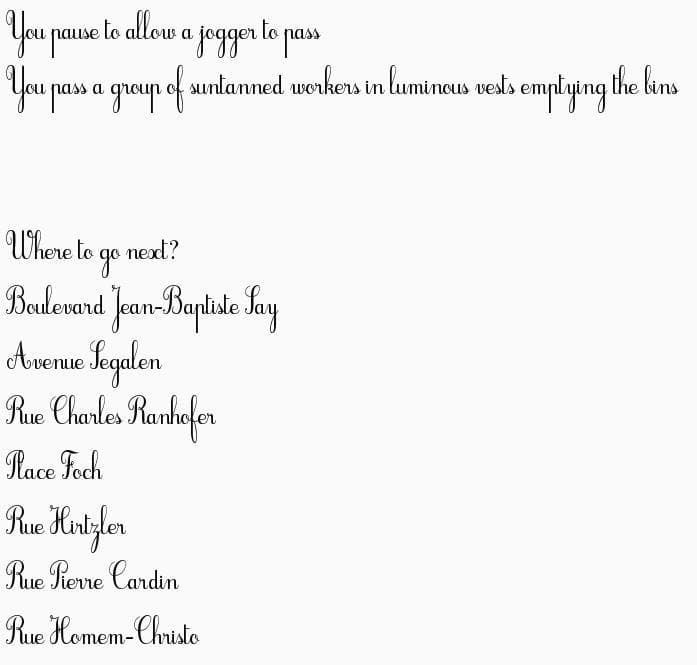 You pause to allow a jogger to pass
You pass a group of suntanned workers in luminous vests emptying the bins
Where to go next?
Boulevard Jean-Baptiste Say
Avenue Segalen
Rue Charles Ranhofer
Place Foch
Rue Hirtzler
Rue Pierre Cardin
Rue Homem-Christo